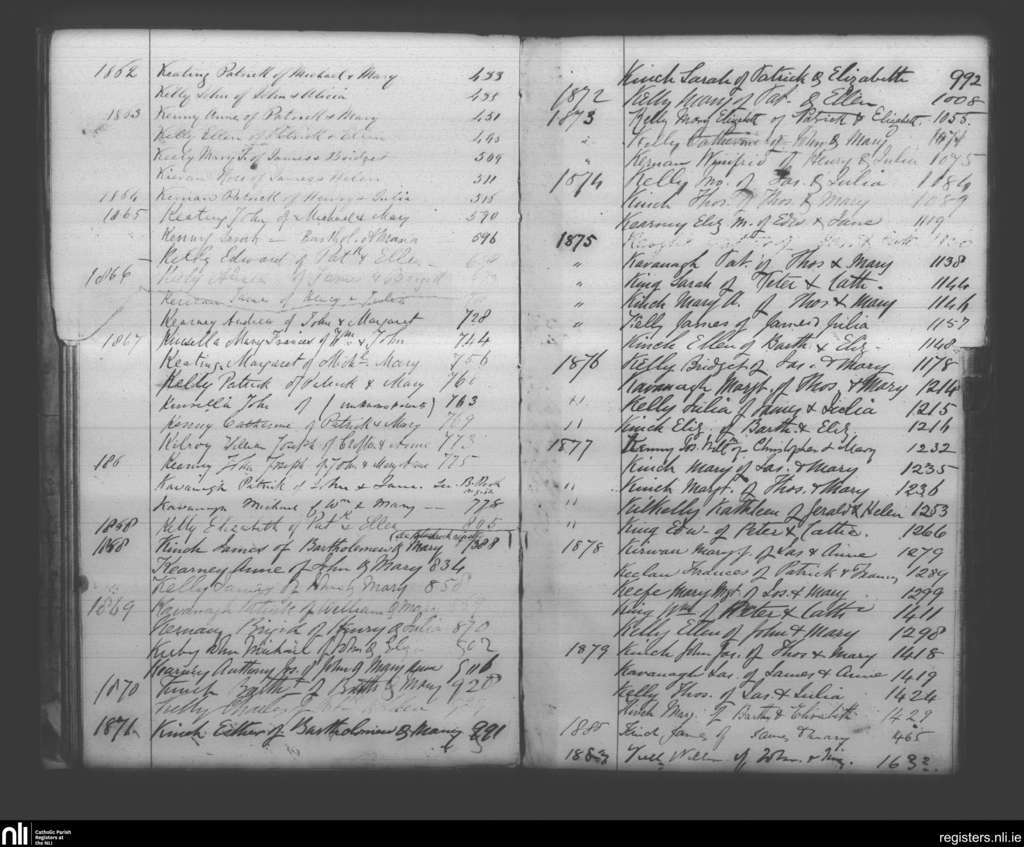 1862 Keating Patrick of Michael & Mary 433
Kelly John of John & Alicia 435
1863 Kenny Anne of Patrick & Mary 451
Kelly Ellen of Patrick & Ellen 495
Keely Mary of James & Bridget 509
Kirwan Rose of James & Helen 511
1864 Kernan Patrick of Henry & Julia 515
1865 Keating John of Michael & Mary 590
Kenny Sarah — Barthol. & Maria 596
Kelly Edward of Patk & Ellen
1866 Kelly of James & Brigid
Kernan Jane of Henry & Julia
Kearney Andrew of John & Margaret 728
1867 Kinsella Mary Frances of Wm & John 744
Keating Margaret of Mich. Mary 756
Kelly Patrick of Patrick & Mary 76
Kinsella John of (unknown) 763
Kenny Catherine of Patrick & Mary 769
Kilroy Joseph of & Anne 773
186 Kearney John Joseph of John & Mary Anne 775
Kavanagh Patrick of John & Jane.
Kavanagh Michael of Wm & Mary — 778
1868 Kelly Elizabeth of Patk & Ellen 805
1868 Kinch James of Bartholomew & Mary 1388
Kearney Anne of John & Mary 834
Kelly James of & Mary 858
1869 Kavanagh Patrick of William & Mary
Kernan Brigid of Henry & Julia 870
Kirby John Michael of John &
Kearney Anthony Jos. of John & Mary Anne
1870 Kinch Barthw of Barthw & Mary 928
Kelly
1871 Kinch Esther of Bartholomew & Mary 991
Kinch Sarah of Patrick & Elizabeth 992
1872 Kelly Mary of Pat. & Ellen 1008
1873 Kelly Mary Elizabeth of Patrick & Elizabeth 1055
" Kelly Catherine of John & Mary 1074
" Kernan Winifrid of Henry & Julia 1075
1874 Kelly Jno. of Jas. & Julia 1084
Kinch Thos. of Thos. & Mary 1089
Kearney Eliz M. of Edw & Jane 1119
1875 Keogh
" Kavanagh Pat. of Thos & Mary 1138
" King Sarah of Peter & Cath. 1144
" Kinch Mary A. of Thos & Mary 1146
" Kelly James of James & Julia 1157
Kinch Ellen of Barth. & Eliz. 1148
1876 Kelly Bridget of Jas. & Mary 1178
Kavanagh Margt. of Thos. & Mary 1214
" Kelly Julia of James & Julia 1215
" Kinch Eliz. of Barth. & Eliz. 1216
1877 Kenny Jos. of Christopher & Mary 1232
Kinch Mary of Jas. & Mary 1235
" Kinch Margt. of Thos. & Mary 1236
" Kilkelly Kathleen of Gerald & Helen 1253
" King Edw. of Peter & Cathe. 1266
1878 Kirwan Mary of Jas & Anne 1279
Keelan Frances of Patrick & Fanny 1289
Keefe Mary Mgt. of Jos. & Mary 1299
King Wm of Peter & Cathe 1411
Kelly Ellen of John & Mary 1298
1879 Kinch John Jas. of Thos & Mary 1418
Kavanagh Jas. of James & Anne 1419
Kelly Thos. of Jas & Julia 1424
Kinch Mary of Barthw & Elizabeth 1429
1880 Kinch James of James & Mary 465
1883 Kelly William of John & Mary. 163
nli
Catholic Parish
Registers at
the NLI
registers.nli.ie